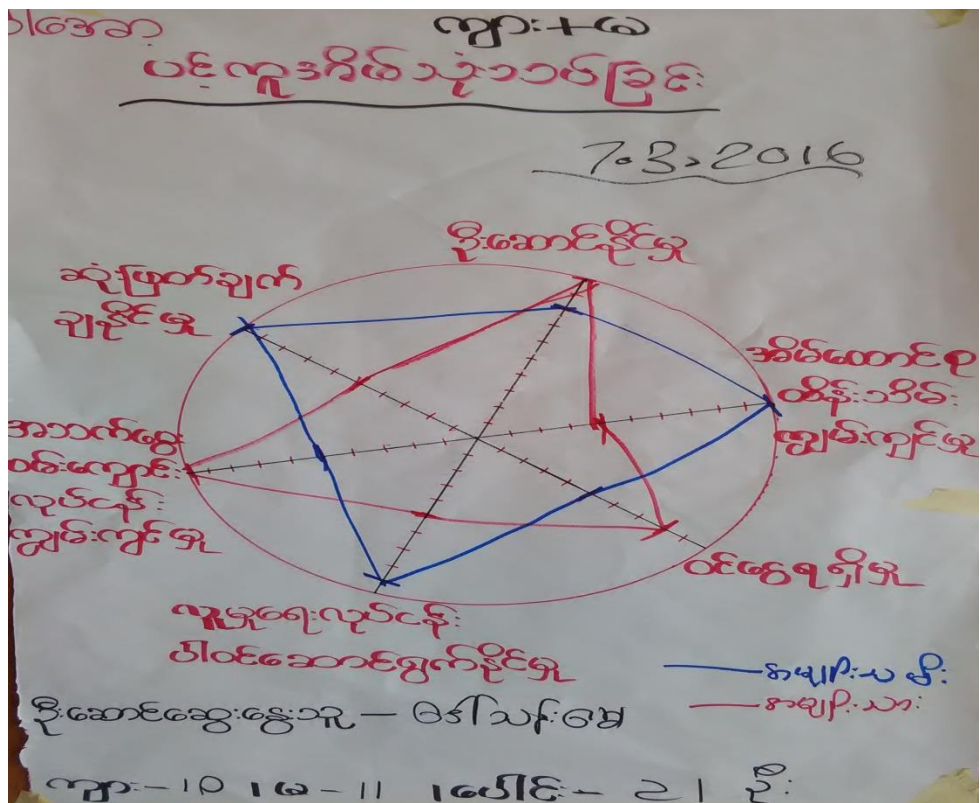 ကျား+မ
ပင့်ကူအိမ်သုံးသပ်ခြင်း
7.3.2016
ဦးဆောင်နိုင်မှု
ဆုံးဖြတ်ချက်
ချနိုင်မှု
အိမ်ထောင်စု
ထိန်းသိမ်း
ကျွမ်းကျင်မှု
အသက်မွေး
ဝမ်းကျောင်း
လုပ်ငန်း
ကျွမ်းကျင်မှု
ဝင်ငွေရရှိမှု
လူမှုရေးလုပ်ငန်း
ပါဝင်ဆောင်ရွက်နိုင်မှု
အမျိုးသမီး
အမျိုးသား
ဦးဆောင်ဆွေးနွေးသူ – ဒေါ်သန်းမွှေ
ကျား-10 ၊ မ-11 ၊ ပေါင်း-21 ဦး